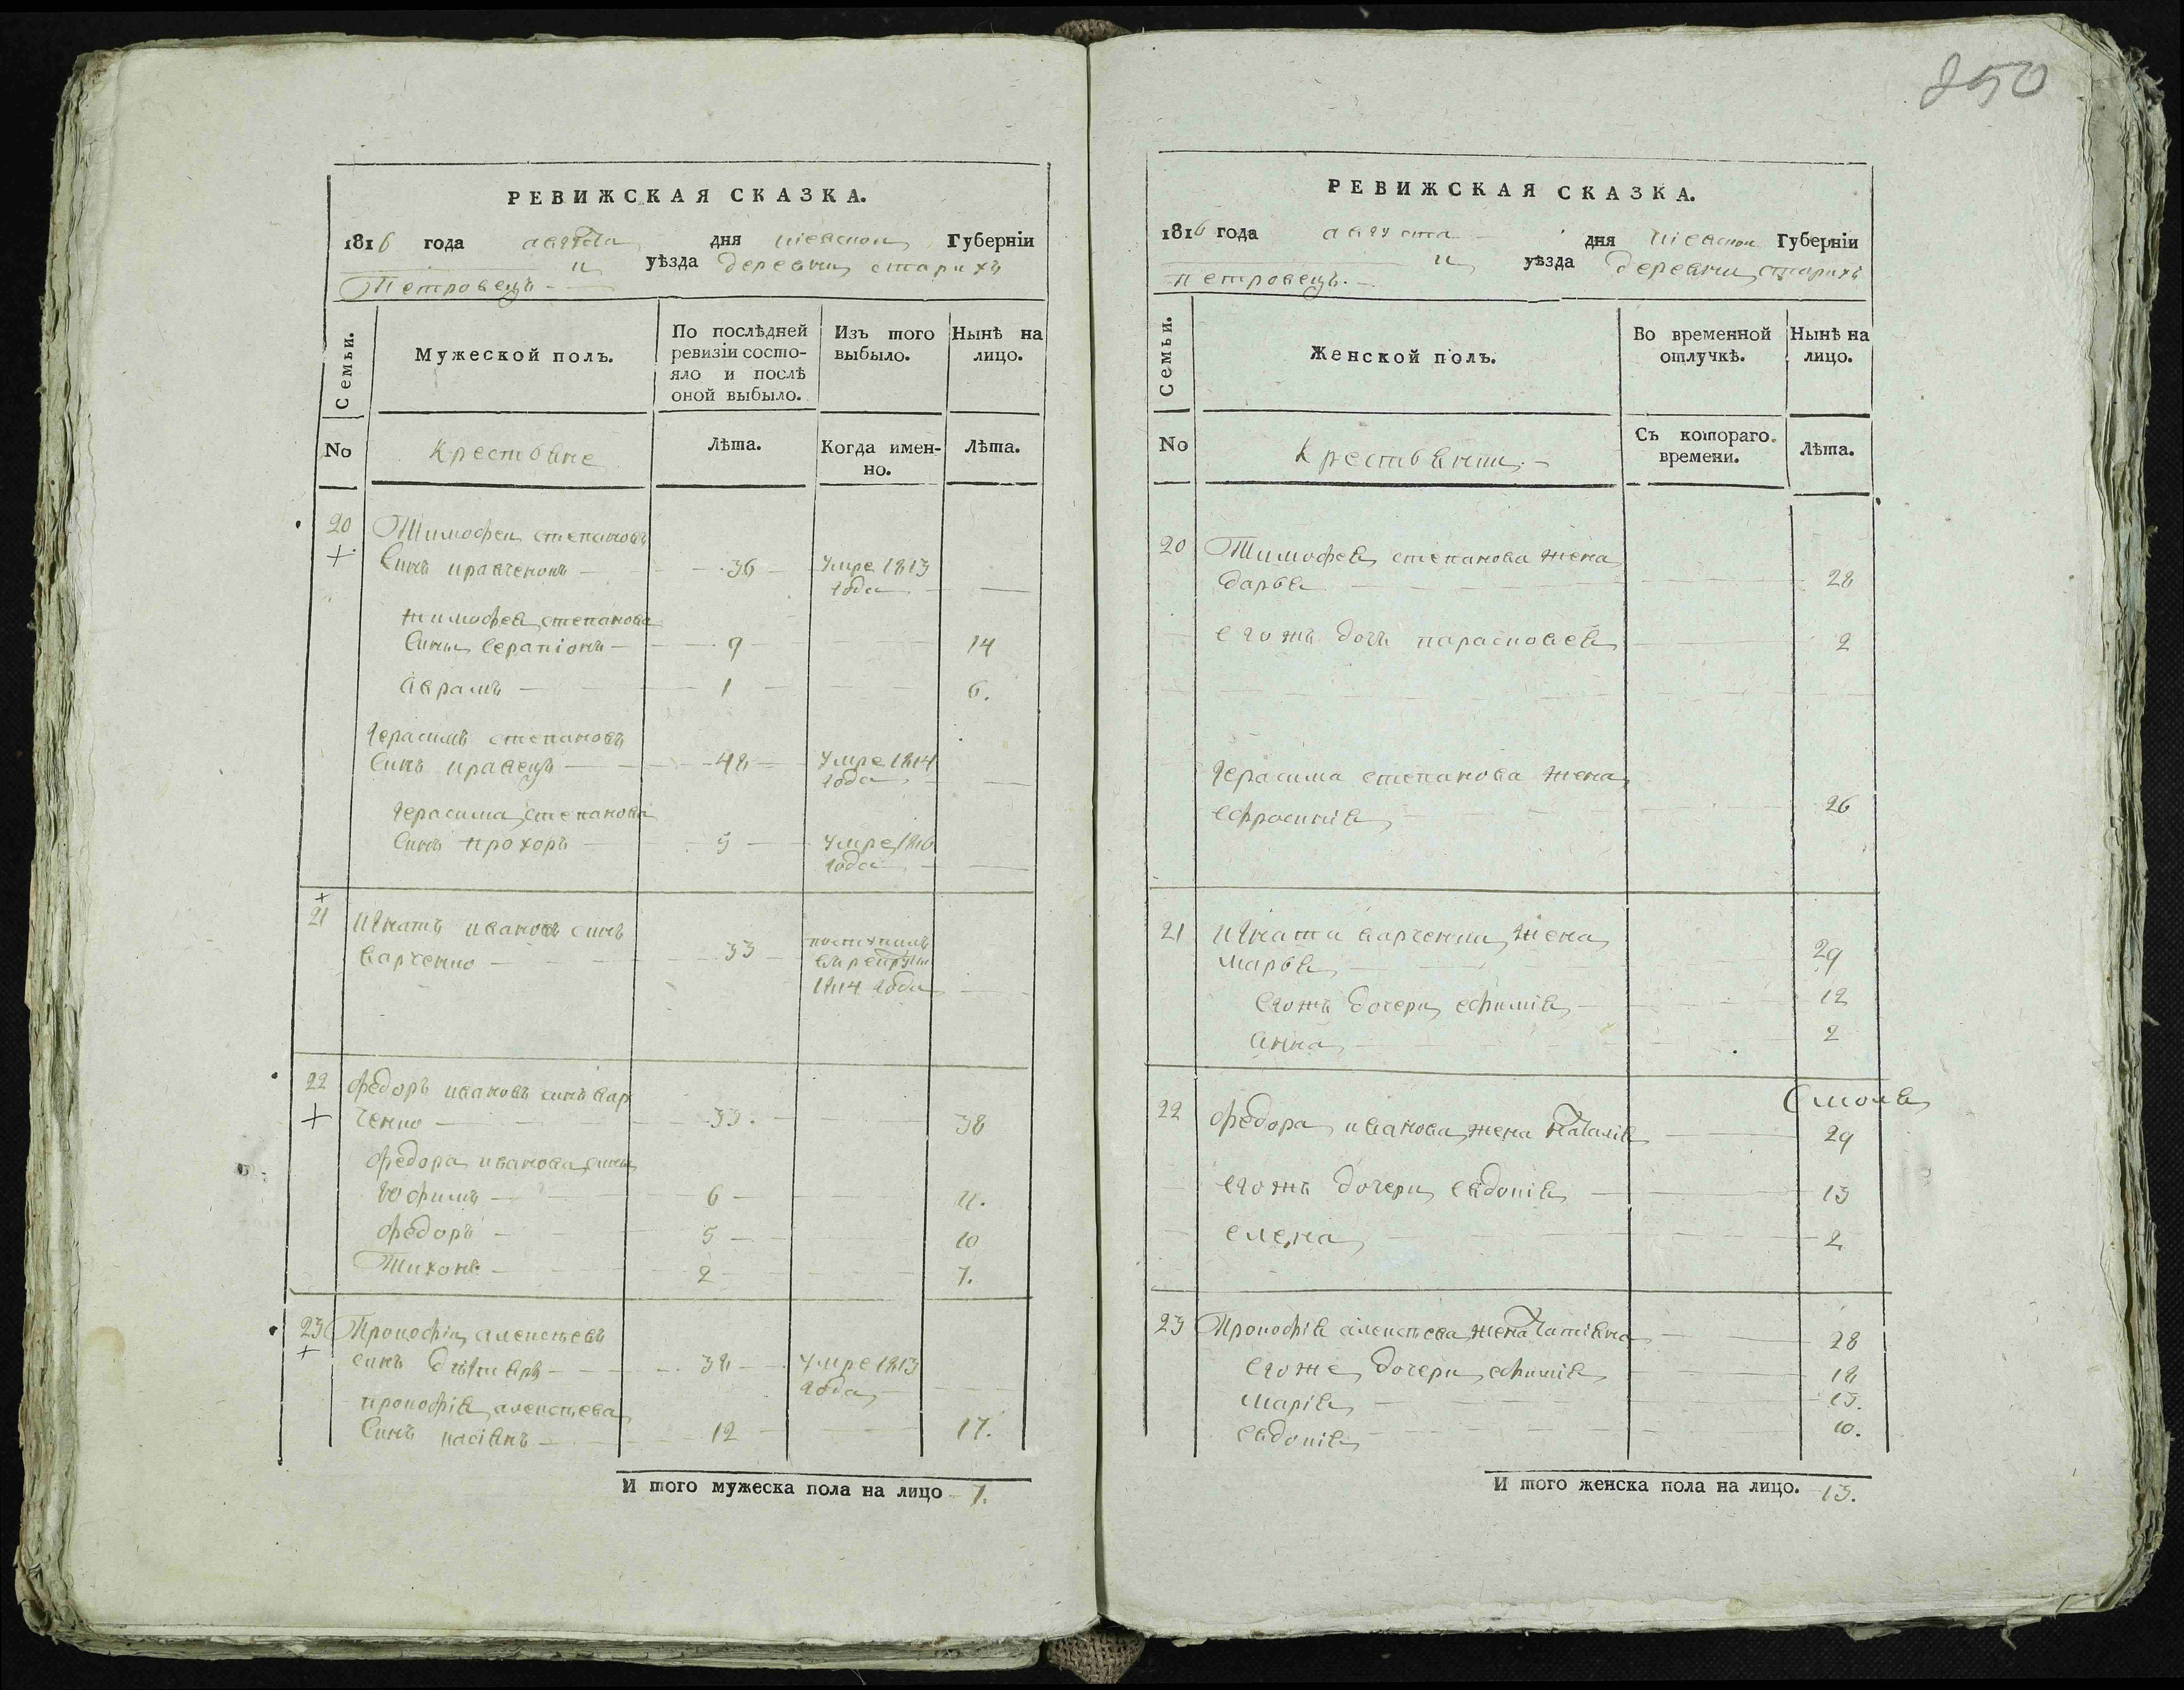 850
РЕВИЖСКАЯ СКАЗКА.
1816 года августа дня киевской Губерніи
и уѣзда деревни старихъ
Петровецъ
Семьи.
Мужеской полъ.
По послѣдней ревизіи состояло и послѣ оной выбыло.
Изъ того выбыло.
Нынѣ на лицо.
No
Крестьяне
Лѣта.
Когда именно.
Лѣта.
20 Тимофей степановъ
синъ кравченокъ 36 умре 1813
года
тимофея степанова
сини серапіонъ 9 14
аврамъ 1 6.
герасимъ степановъ
синъ кравецъ 48 умре 1814
года
герасима степанова
синъ прохоръ 5 умре 1816
года
21 игнатъ ивановъ синъ
варченко 33 поступилъ
1814 года
22 федоръ ивановъ синъ вар
ченко 33. 38
федора иванова сини
юфимъ 6 11.
федоръ 5 10
Тихонъ 2 7.
23 Прокофій алексѣевъ
синъ 38 умре 1813
года
прокофія алексѣева
синъ касіянъ 12 17.
И того мужеска пола на лицо 7.
РЕВИЖСКАЯ СКАЗКА.
1816 года августа дня кіевской Губерніи
и уѣзда деревни старихъ
петровецъ.
Семьи.
Женской полъ.
Во временной отлучкѣ.
Нынѣ на лицо.
No
Крестьянки.
Съ котораго времени.
Лѣта.
20 Тимофея степанова жена
дарья 28
егожъ дочъ парасковея 2
герасима степанова жена
ефросинія 26
21 игната варченка жена
марья 29
егожъ дочери ефимія 12
анна 2
22 федора иванова жена наталія 29
егожъ дочери евдокія 13
елена 2
23 Прокофія алексѣева жена татіяна 28
егоже дочери ефимія 18
марія 13.
евдокія 10.
И того женска пола на лицо. 13.